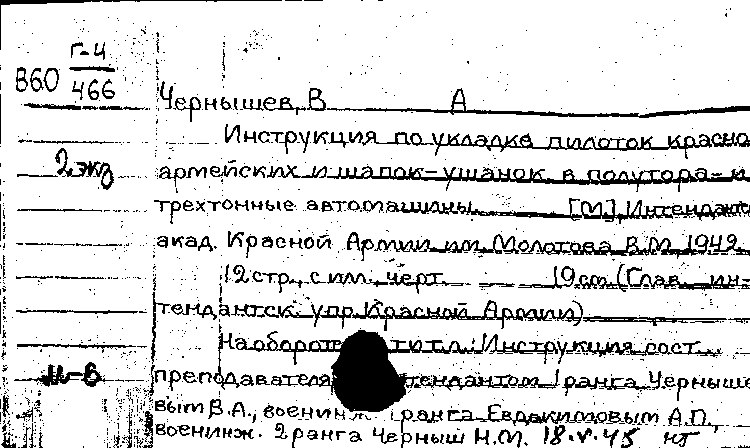 Г-4
В60 466
Чернышев, В А
Инструкция по укладке пилоток красно
2 экз
армейских и шапок-ушанок в полутора- и
трехтонные автомашины. [М], Интендантс
акад. Красной Армии им. Молотова В.М, 1942.
12 стр., с илл. черт. 19 см (Глав. ин-
тендантск. упр. Красной Армии)
На обороте тит.л.: Инструкция сост.
М-В
преподавателя тендантом 1 ранга Черныше
вым В.А., военинж. ранга Евдакимовым А.П.,
военинж. 2 ранга Черныш Н.М. 18.V.45